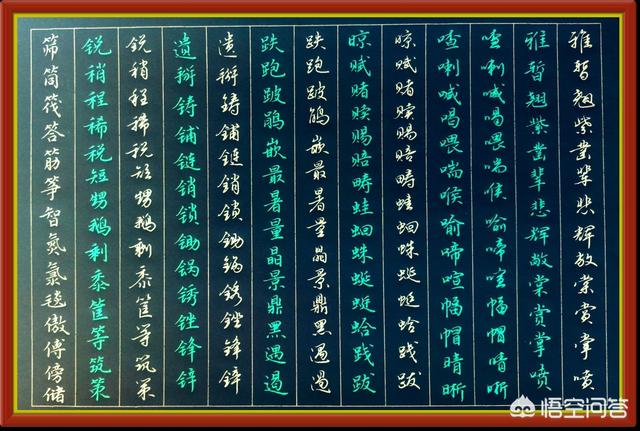 雅暂翘紫凿辈悲辉敞棠赏掌喷
雅暂翘紫凿辈悲辉敞棠赏掌喷
喳喇喊喝喂喘喉喻啼喧幅帽晴晰
喳喇喊喝喂喘喉喻啼喧幅帽晴晰
晾赋赌赎赐赔畴蛙蛔蛛蜓蜒蛤践跋
晾赋赌赎赐赔畴蛙蛔蛛蜓蜒蛤践跋
跌跑跛鹃嵌最暑量晶景鼎黑遇遏
跌跑跛鹃嵌最暑量晶景鼎黑遇遏
遗掰铸铺链销锁锄锅锈锉锋锌
遗掰铸铺链销锁锄锅锈锉锋锌
锐稍程稀税短甥鹅剩黍筐等筑策
锐稍程稀税短甥鹅剩黍筐等筑策
筛筒筏答筋筝智氮氯毯傲傅傍储
悟空问答